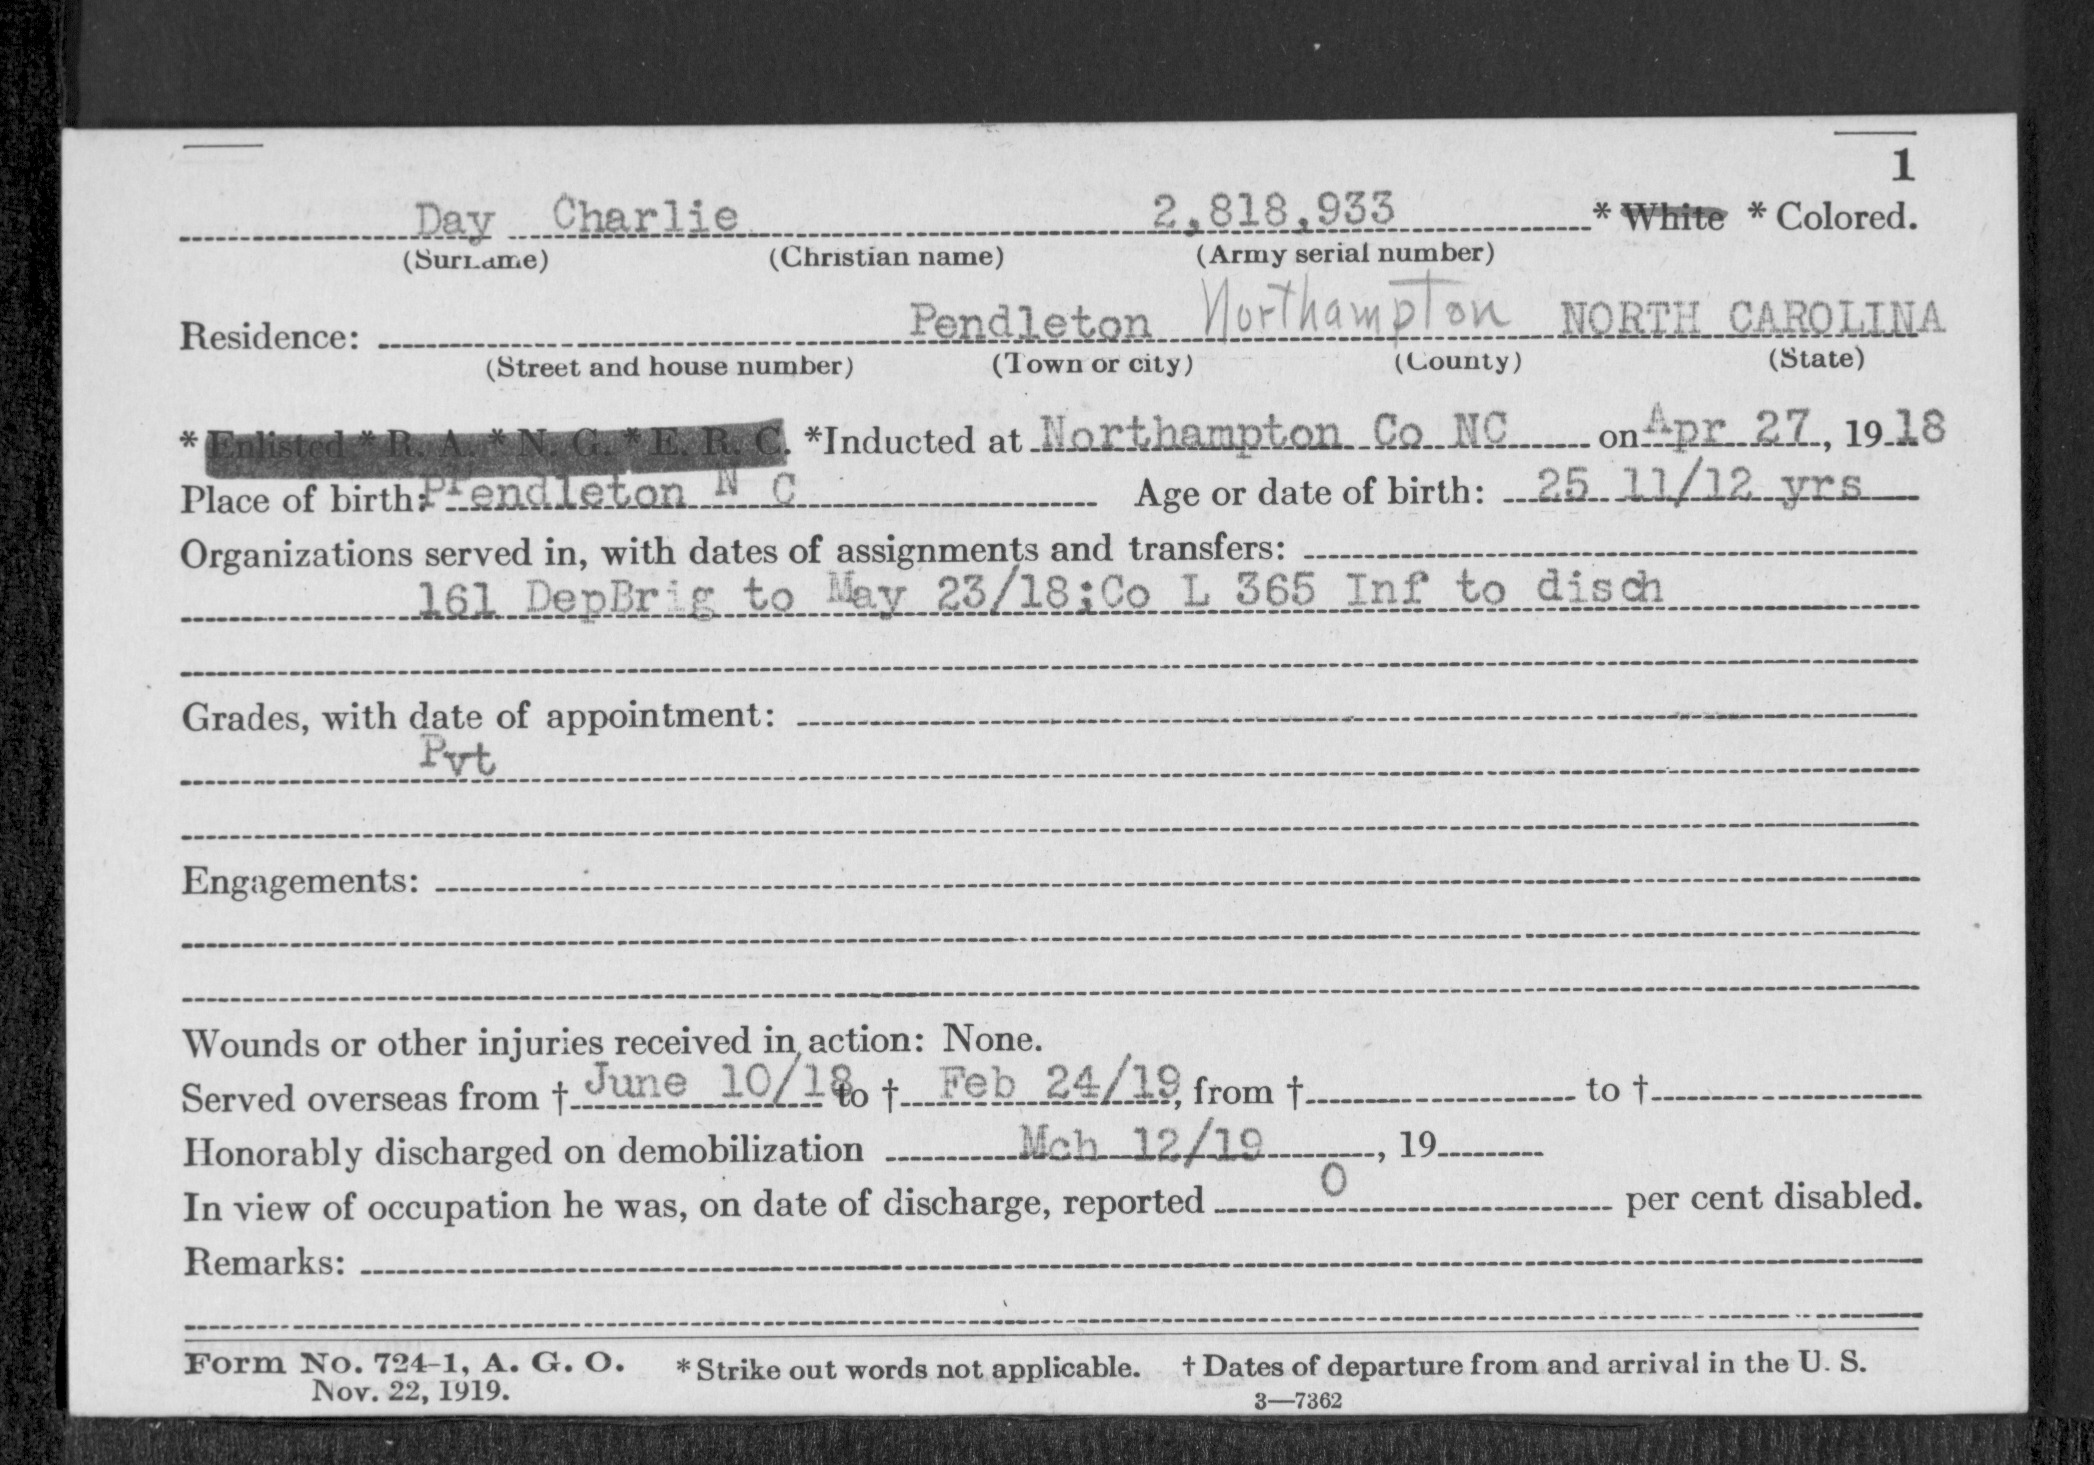 1
Day Charlie 2,818,933 * White * Colored.
(Surname) (Christian name) (Army serial number)
Residence: Pendleton Northampton NORTH CAROLINA
(Street and house number) (Town or city) (County) (State)
* Enlisted * R. A. * N. G. * E. R. C. *Inducted at Northampton Co NC on Apr 27, 1918
Place of birth: Pendleton N C Age or date of birth: 25 11/12 yrs
Organizations served in, with dates of assignments and transfers:
161 DepBrig to May 23/18;Co L 365 Inf to disch
Grades, with date of appointment:
Pvt
Engagements:
Wounds or other injuries received in action: None.
Served overseas from † June 10/18 to † Feb 24/19, from † to †
Honorably discharged on demobilization Mch 12/19, 19
In view of occupation he was, on date of discharge, reported 0 per cent disabled.
Remarks:
Form No. 724-1, A. G. O. * Strike out words not applicable. † Dates of departure from and arrival in the U. S.
Nov. 22, 1919. 3—7362